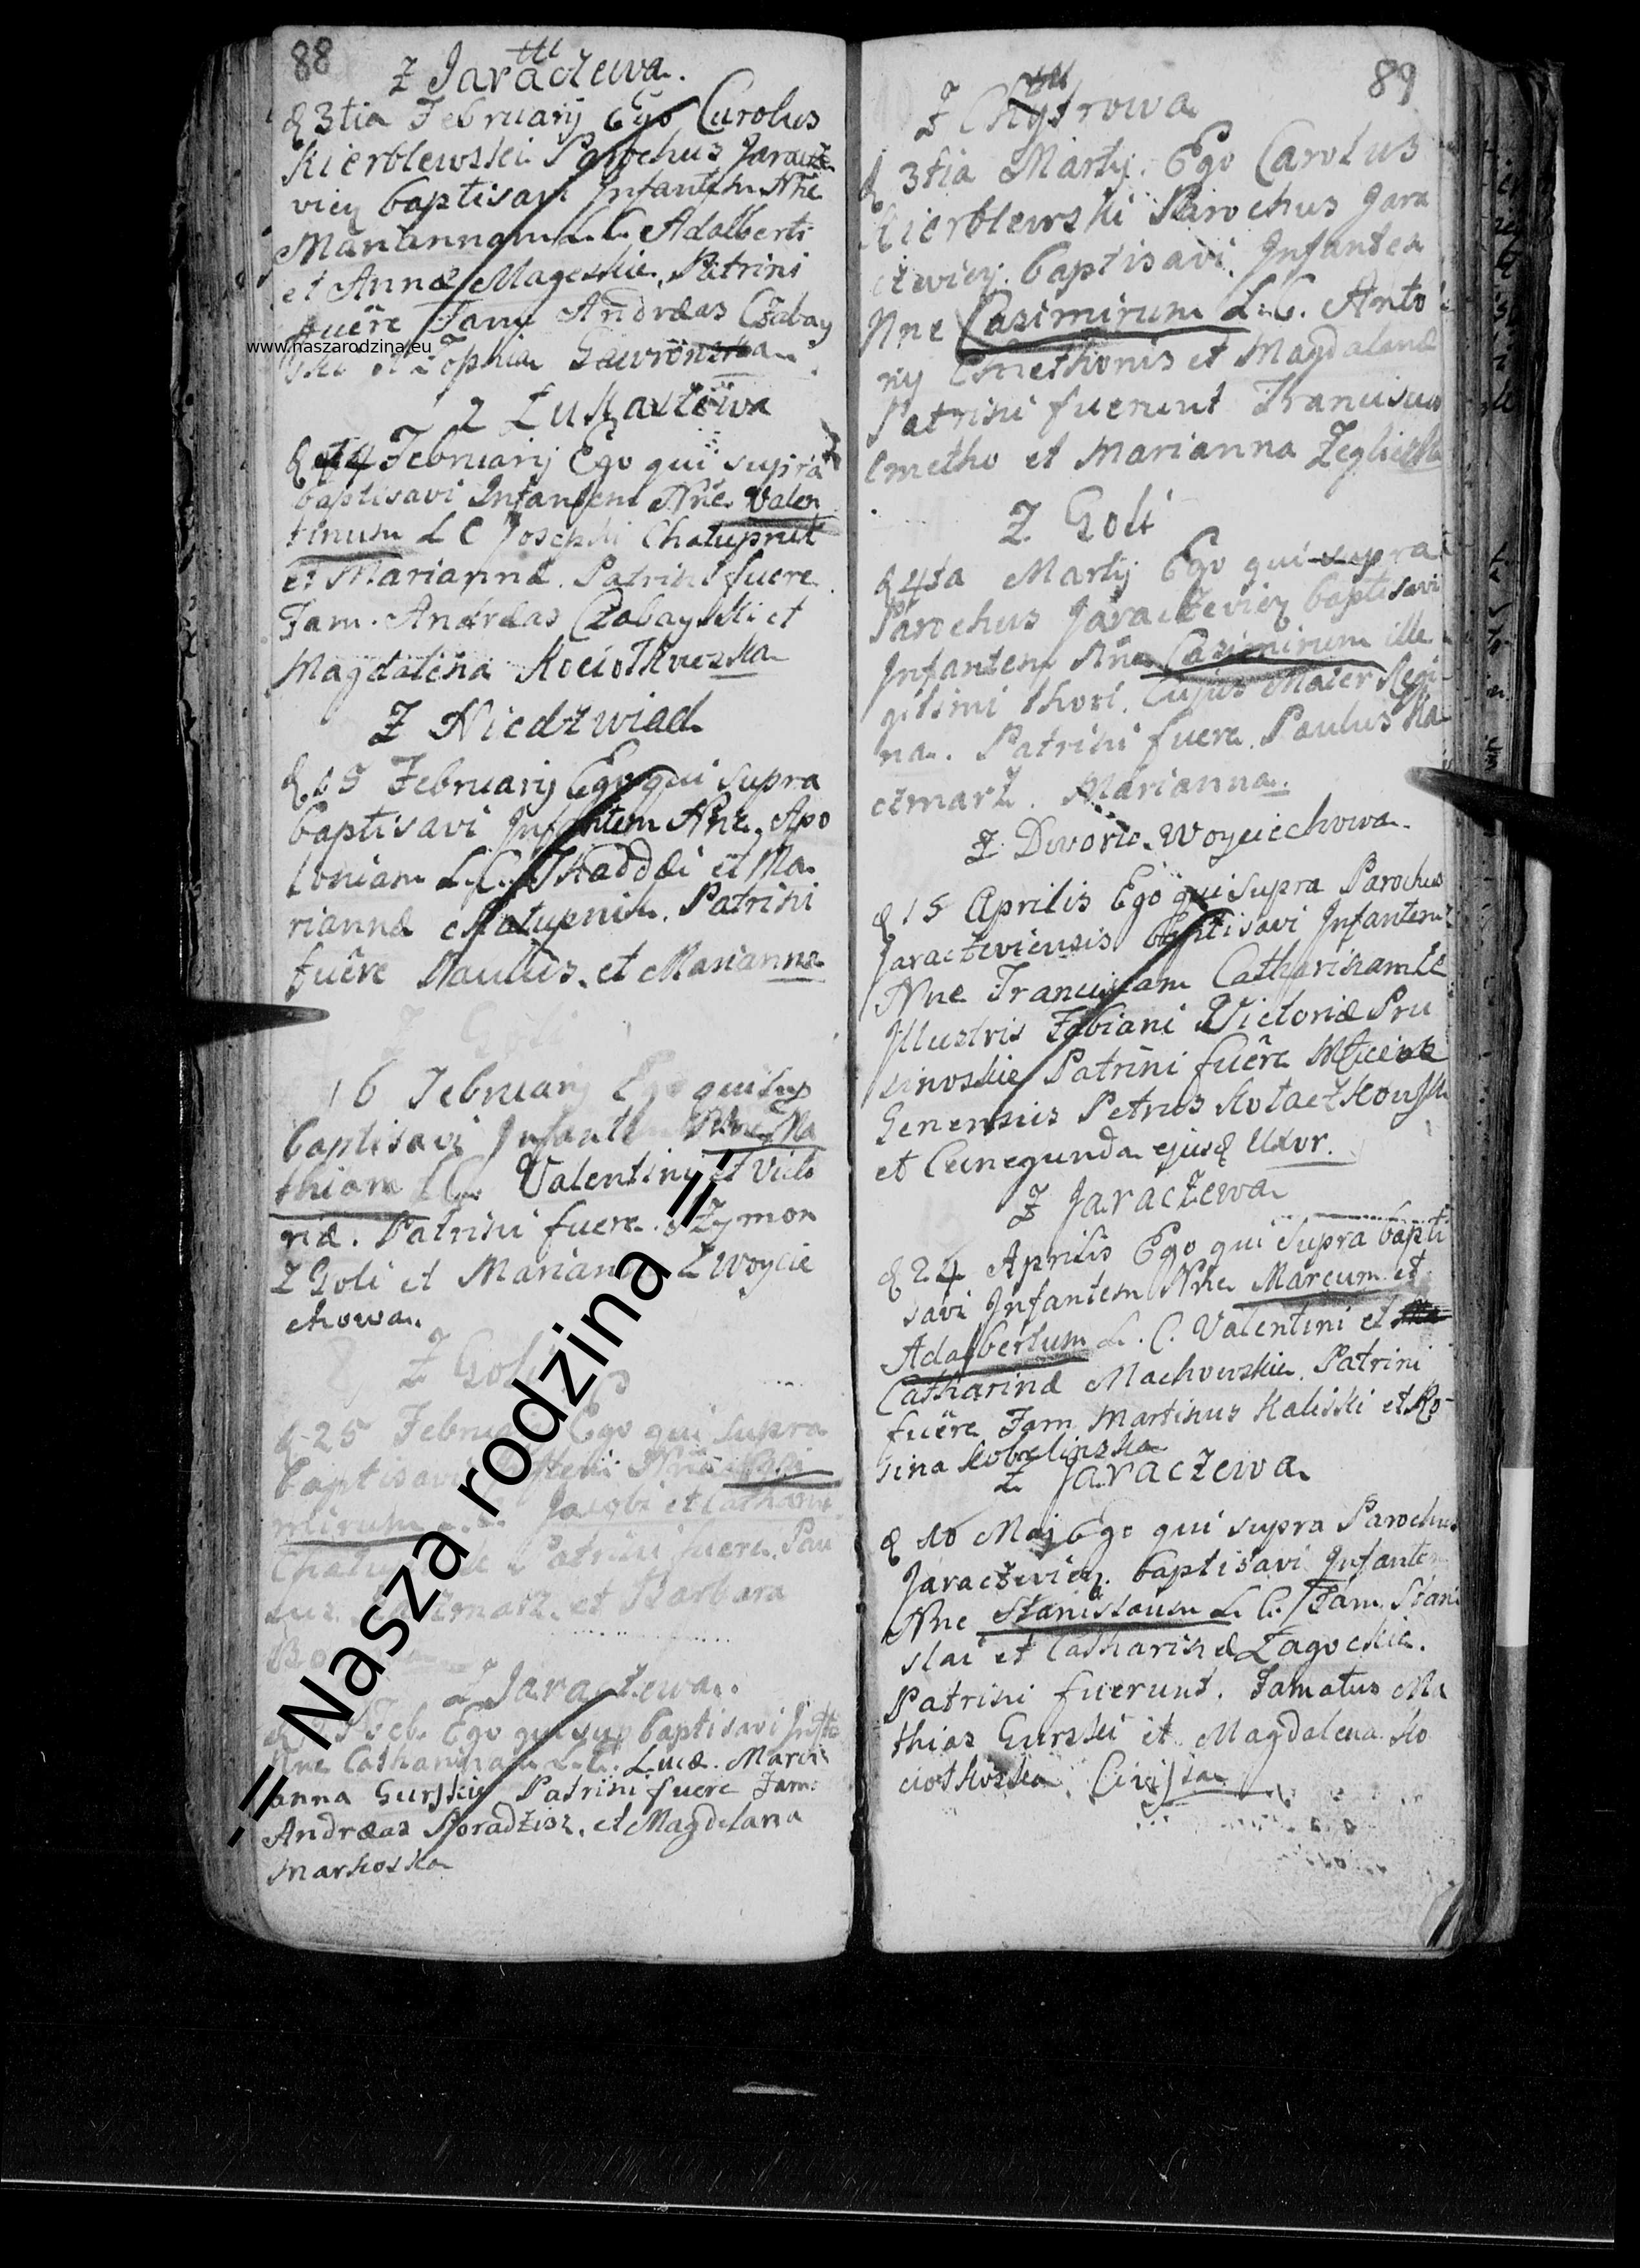 88
Z Jaraczewa.
d 3tia February Ego Carolus
Kierblewski Parochus Jaracze
vien baptisavi Infantem Nne
Mariannam L. C. Adalberti
et Annæ Mageskie. Patrini
fuêre Fam Andræas Czabay
www.naszarodzina.eu
ski et Zophia Gawronska
Z Łukaszewa
d 14 February Ego qui supra
baptisavi Infantem Nne Valen
tinum L C Josephi Chałupnik
et Mariannæ. Patrini fuere
Fam. Andræas Czabayski et
Magdalena Kociołkwska
Z Niedzwiad
d 15 February Ego qui supra
baptisavi Infantem Nne. Apo
loniam L. C. Thaddæi et Ma
riannæ Chałupnik. Patrini
fuêre Paulus. et Marianna
Z Goli
16 February Ego qui sup
baptisavi Infantem Nne Ma
thiam L C. Valentini et Victo
riæ. Patrini fuere. Szymon
Z Goli et Marianna Z Woycie
chowa.
Z Goli
d 25 February Ego qui supra
baptisavi Nne Casi
mirum L. C. Jacobi et Catharinæ
Patrini fuere. Pau
lus et Barbara
Z Jaraczewa.
Feb. Ego qui sup baptisavi Infte
Nne Catharinam L. C. Lucæ. Mari
anna Gurskie Patrini fuere Fam:
Andræas Sporadzisz. et Magdelana
Markoska
-= Nasza rodzina =-
89
Z Chytrowa
d 3tia Marty. Ego Carolus
Kierblewski Parochus Jara
czwien. baptisavi Infantem
Nne Casimirum L. C. Anto
ny Cmethonis et Magdalenæ
Patrini fuerunt Franciscus
Cmetho et Marianna Zeglierka
Z Goli
d 4ta Marty Ego qui supra
Parochus Jaraczevien baptisavi
Infantem Nne Casimirum ille
gitimi thori. Cujus Mater Regi
na. Patrini fuere. Paulus Ka
czmarz. Marianna.
Z Dworu Woyciechowa.
d 15 Aprilis Ego qui supra Parochus
Jaraczeviensis baptisavi Infantem
Nne Franciscam Catharinam LC
Illustris Fabiani Victoriæ Pru
sinoskie Patrini fuêre
Generosus Petrus Kołaczkowski
et Cunegunda ejusq Uxor.
Z Jaraczewa
d 24 Aprilis Ego qui supra bapti
savi Infantem Nne Marcum et
Adalbertum L. C. Valentini et
Catharinæ Machowskie. Patrini
fuëre Fam Martinus Kaliski et Re
gina Kobrelinska
Z Jaraczewa.
d 10 Maj Ego qui supra Parochus
Jaraczevien. baptisavi Infantem
Nne Stanislaum L. C. Fam. Stani
slai et Catharinæ Zagockie.
Patrini fuerunt. Famatus Ma
thias Gurski et Magdalena Ko
ciołkoska